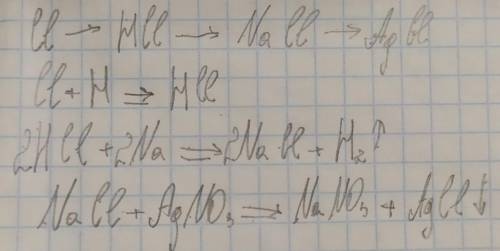 Cl → HCl → NaCl → AgCl
Cl + H ⇒ HCl
2HCl + 2Na ⇒ 2NaCl + H₂↑
NaCl + AgNO₃ ⇒ NaNO₃ + AgCl↓